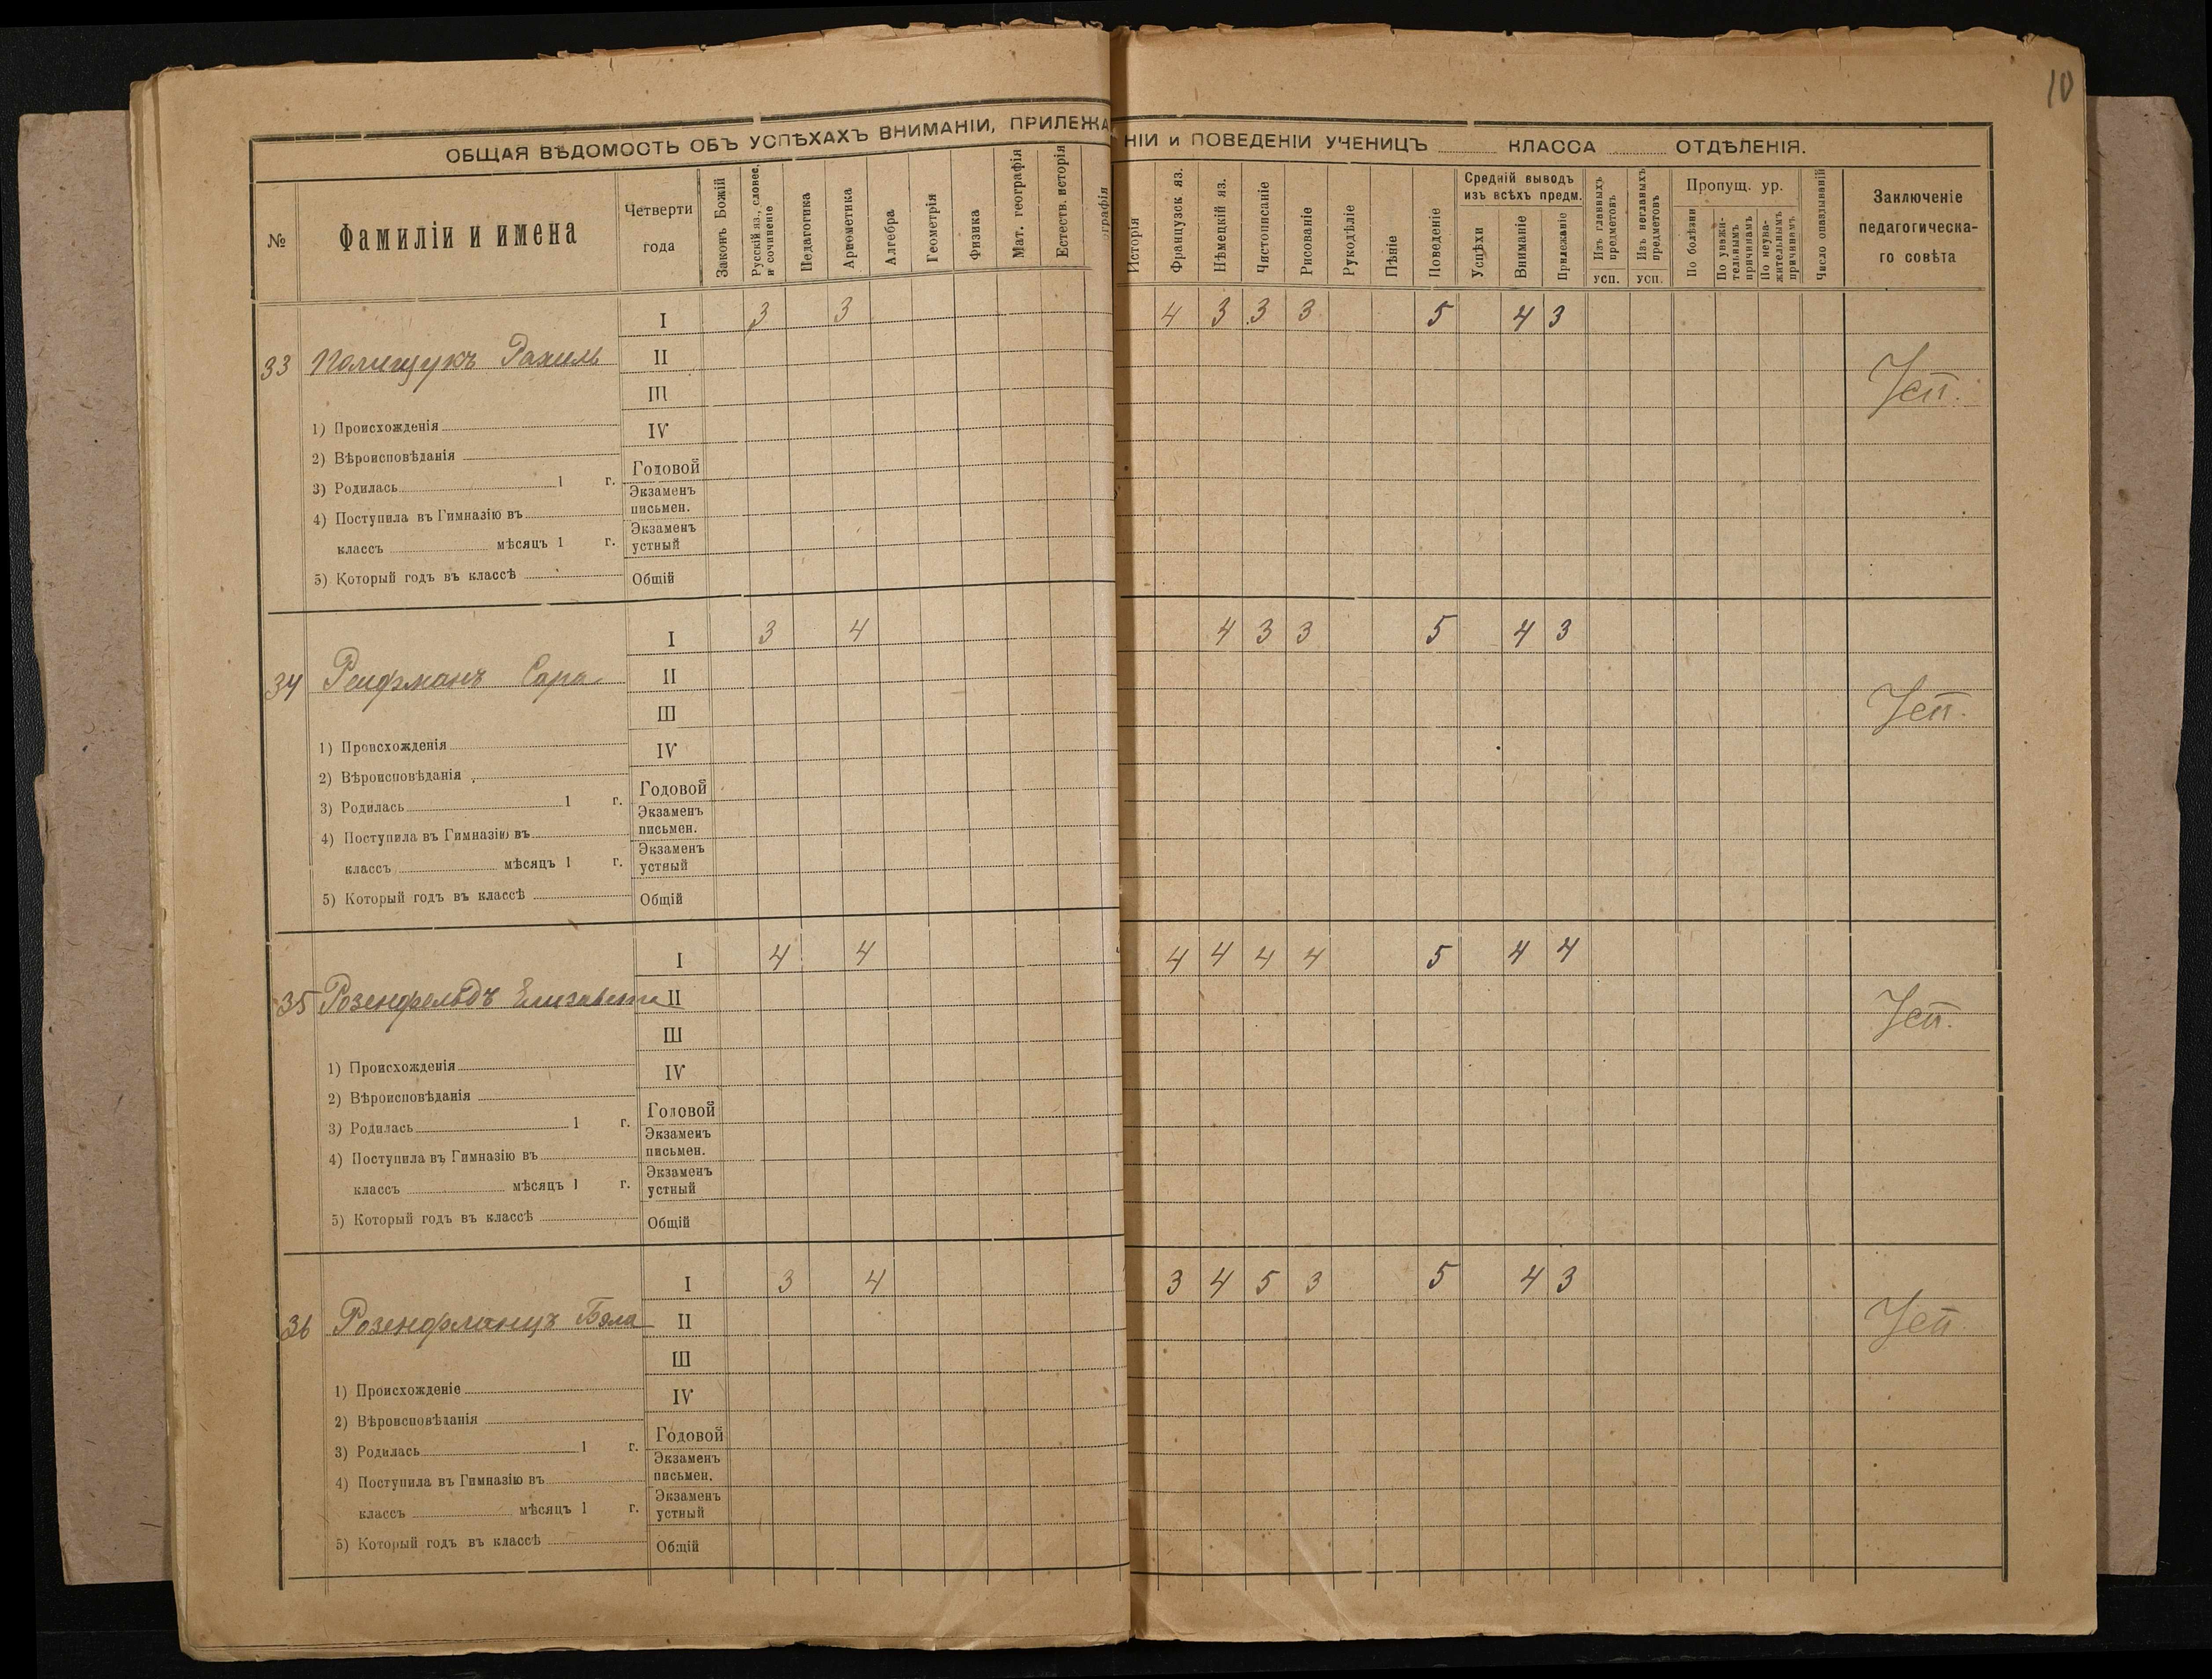 10
ОБЩАЯ ВѢДОМОСТЬ ОБЪ УСПѢХАХЪ ВНИМАНІИ, ПРИЛЕЖАНІИ и ПОВЕДЕНІИ УЧЕНИЦЪ КЛАССА ОТДѢЛЕНІЯ.
№ Фамиліи и имена Четверти года Законъ Божій Русскій яз., словес. и сочиненіе Педагогика Ариѳметика Алгебра Геометрія Физика Мат. географія Естеств. исторія Исторія Французск яз. Нѣмецкій яз. Чистописаніе Рисованіе Рукодѣліе Пѣніе Поведеніе Средній выводъ изъ всѣхъ предм. Успѣхи Вниманіе Прилежаніе Изъ главныхъ предметовъ усп. Изъ неглавныхъ предметовъ усп. Пропущ. ур. По болѣзни По уважительнымъ причинамъ По неуважительнымъ причинамъ Число опаздываній Заключеніе педагогическаго совѣта
I 3 3 4 3 3 3 5 4 3
33 Полищукъ Рахиль II Усп.
III
1) Происхожденія IV
2) Вѣроисповѣданія Годовой
3) Родилась 1 г. Экзаменъ письмен.
4) Поступила въ Гимназію въ
классъ мѣсяцъ 1 г. Экзаменъ устный
5) Который годъ въ классѣ Общій
I 3 4 4 3 3 5 4 3
34 Рейфманъ Сара II Усп.
III
1) Происхожденія IV
2) Вѣроисповѣданія Годовой
3) Родилась 1 г. Экзаменъ письмен.
4) Поступила въ Гимназію въ
классъ мѣсяцъ 1 г. Экзаменъ устный
5) Который годъ въ классѣ Общій
I 4 4 4 4 4 4 5 4 4
35 Розенфельдъ Елизавета II Усп.
III
1) Происхожденія IV
2) Вѣроисповѣданія Годовой
3) Родилась 1 г. Экзаменъ письмен.
4) Поступила въ Гимназію въ
классъ мѣсяцъ 1 г. Экзаменъ устный
5) Который годъ въ классѣ Общій
I 3 4 3 4 5 3 5 4 3
36 Розенфланцъ Бэла II Усп
III
1) Происхожденіе IV
2) Вѣроисповѣданія Годовой
3) Родилась 1 г. Экзаменъ письмен.
4) Поступила въ Гимназію въ
классъ мѣсяцъ 1 г. Экзаменъ устный
5) Который годъ въ классѣ Общій